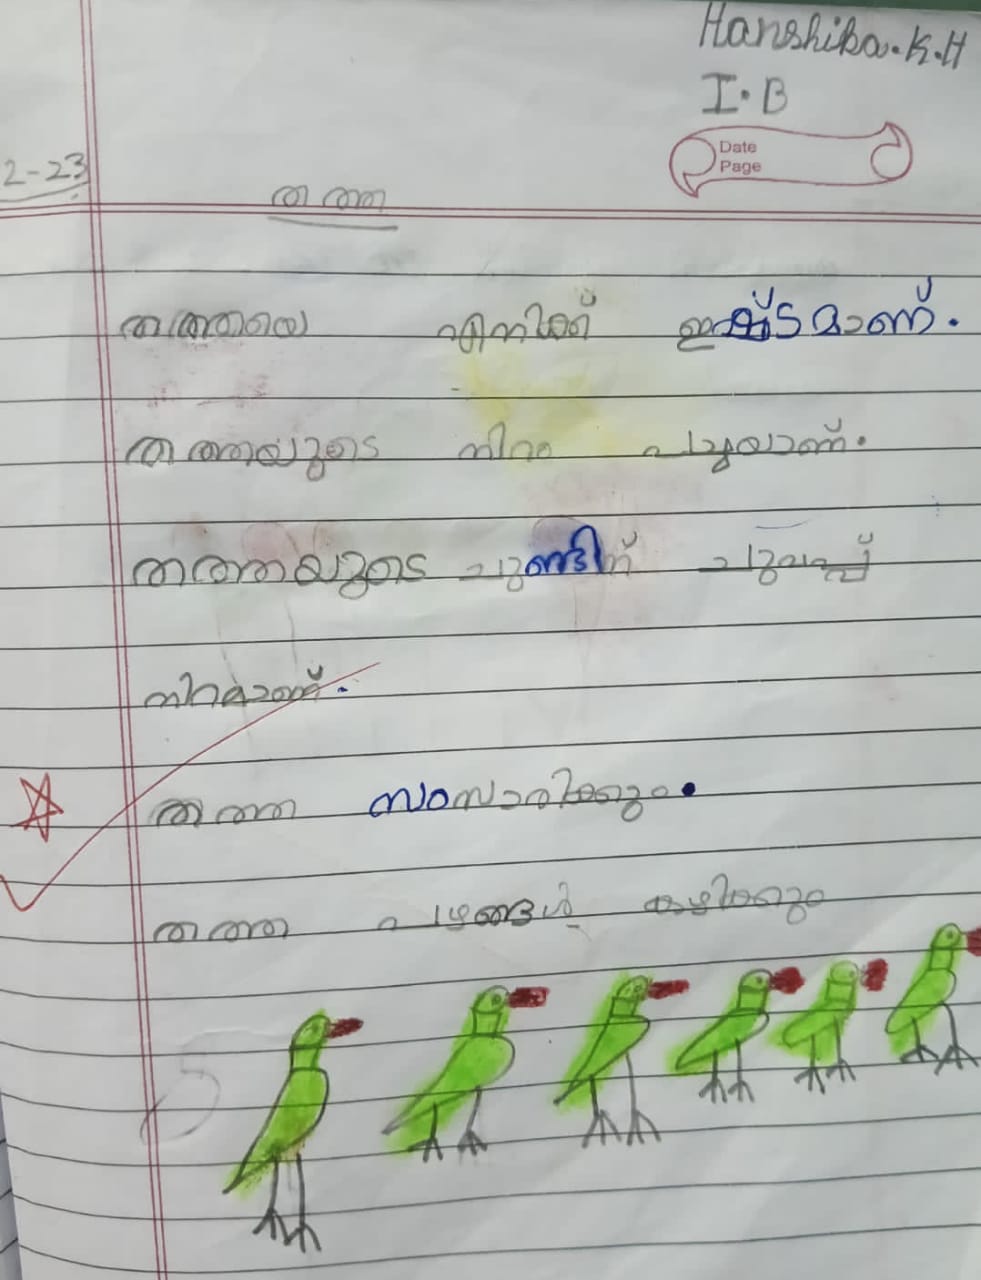 Hanshika.K.H
I.B
Date
Page
2-23
തത്ത
തത്തയെ എനിക്ക് ഇഷ്ടമാണ്.
തത്തയുടെ നിറം പച്ചയാണ്.
തത്തയുടെ ചുണ്ടിന് ചുവപ്പ്
നിറമാണ്.
തത്ത സംസാരിക്കും.
തത്ത പഴങ്ങൾ കഴിക്കും